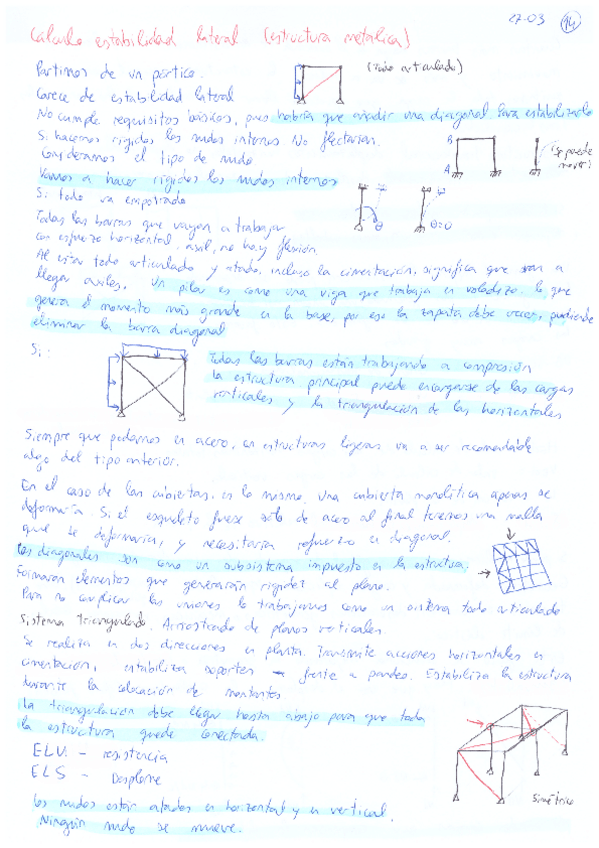 27-03 14
Calculo estabilidad lateral (estructura metalica)
Partimos de un pórtico. (Todo articulado)
Carece de estabilidad lateral
No cumple requisitos básicos, pues habria que añadir una diagonal para estabilizarlo
Si hacemos rigidos los nudos internos No flectarian.
Consideramos el tipo de nudo
B
A
(Se puede mover)
Vamos a hacer rigidos los nudos internos
Si todo va empotrado
Todas las barras que vayan a trabajar
con esfuerzo horizontal, axil, no hay flexión.
θ θ=0
Al estar todo articulado y atado, incluso la cimentación, significa que van a
llegar axiles. Un pilar es como una viga que trabaja en voladizo, lo que
genera el momento más grande en la base, por eso la zapata debe crecer, pudiendo
eliminar la barra diagonal
Si:
Todas las barras están trabajando a compresión
la estructura principal puede encargarse de las cargas
verticales y la triangulación de las horizontales
Siempre que podamos en acero, en estructuras ligeras va a ser recomendable
algo del tipo anterior.
En el caso de las cubiertas, es lo mismo, una cubierta monolitica apenas se
deformaria. Si el esqueleto fuese solo de acero al final tenemos una malla
que se deformaria, y necesitaria refuerzo en diagonal.
Las diagonales son como un subsistema impuesto en la estructura.
Formaran elementos que generarán rigidez al plano.
Para no complicar las uniones lo trabajamos como un sistema todo articulado
Sistema Triangulado. Arriostrado de planos verticales.
Se realiza en dos direcciones en planta. Transmite acciones horizontales en
cimentación, estabiliza soportes frente a pandeo. Estabiliza la estructura
durante la colocación de montantes
La triangulación debe llegar hasta abajo para que toda
la estructura quede conectada.
ELU - resistencia
ELS - Desplome
Simétrico
Los nudos están atados en horizontal y en vertical.
Ningún nudo se mueve.